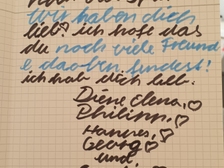 Wir haben dich
lieb! ich hofe das
du noch viele Freund
e daoben findest!
ich hab dich lieb.
Diene Elena, ♡
Philipp, ♡
Hannes, ♡
Georg ♡
und